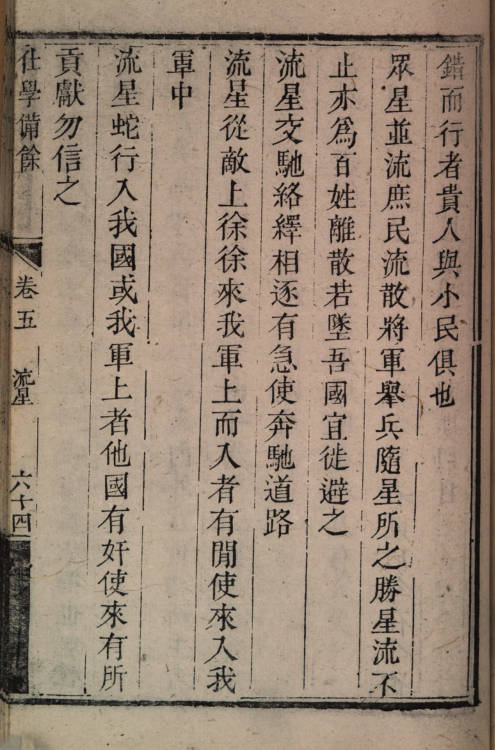 錯而行者貴人與小民俱也
眾星並流庶民流散將軍舉兵隨星所之勝星流不
止亦為百姓離散若墜吾國宜徙避之
流星交馳絡繹相逐有急使奔馳道路
流星從敵上徐徐來我軍上而入者有間使來入我
軍中
流星蛇行入我國或我軍上者他國有奸使來有所
貢獻勿信之
仕學備餘
卷五
流星
六十四